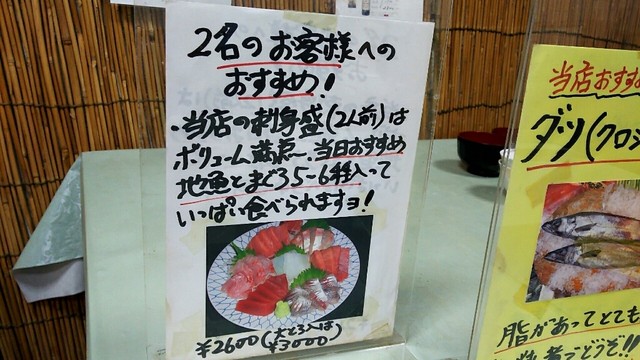 2名のお客様への
おすすめ！
・当店の刺身盛(2人前)は
ボリューム満点〜、当日おすすめ
地魚とまぐろ5〜6種入って
いっぱい食べられますヨ！
¥2600(大とろ入は
¥3000)
当店おすすめ
ダツ(クロシ
脂があってとても
どうぞ!!